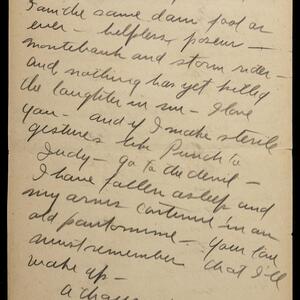 I am the same dam fool as
ever – helpless poseur –
montebank and storm rider –
and nothing has yet killed
the laughter in me – I love
you – and if I make sterile
gestures like Punch to
Judy – go to the devil –
I have fallen asleep and
my arms continue in an
old pantomime – You
must remember that I'll
wake up –
a